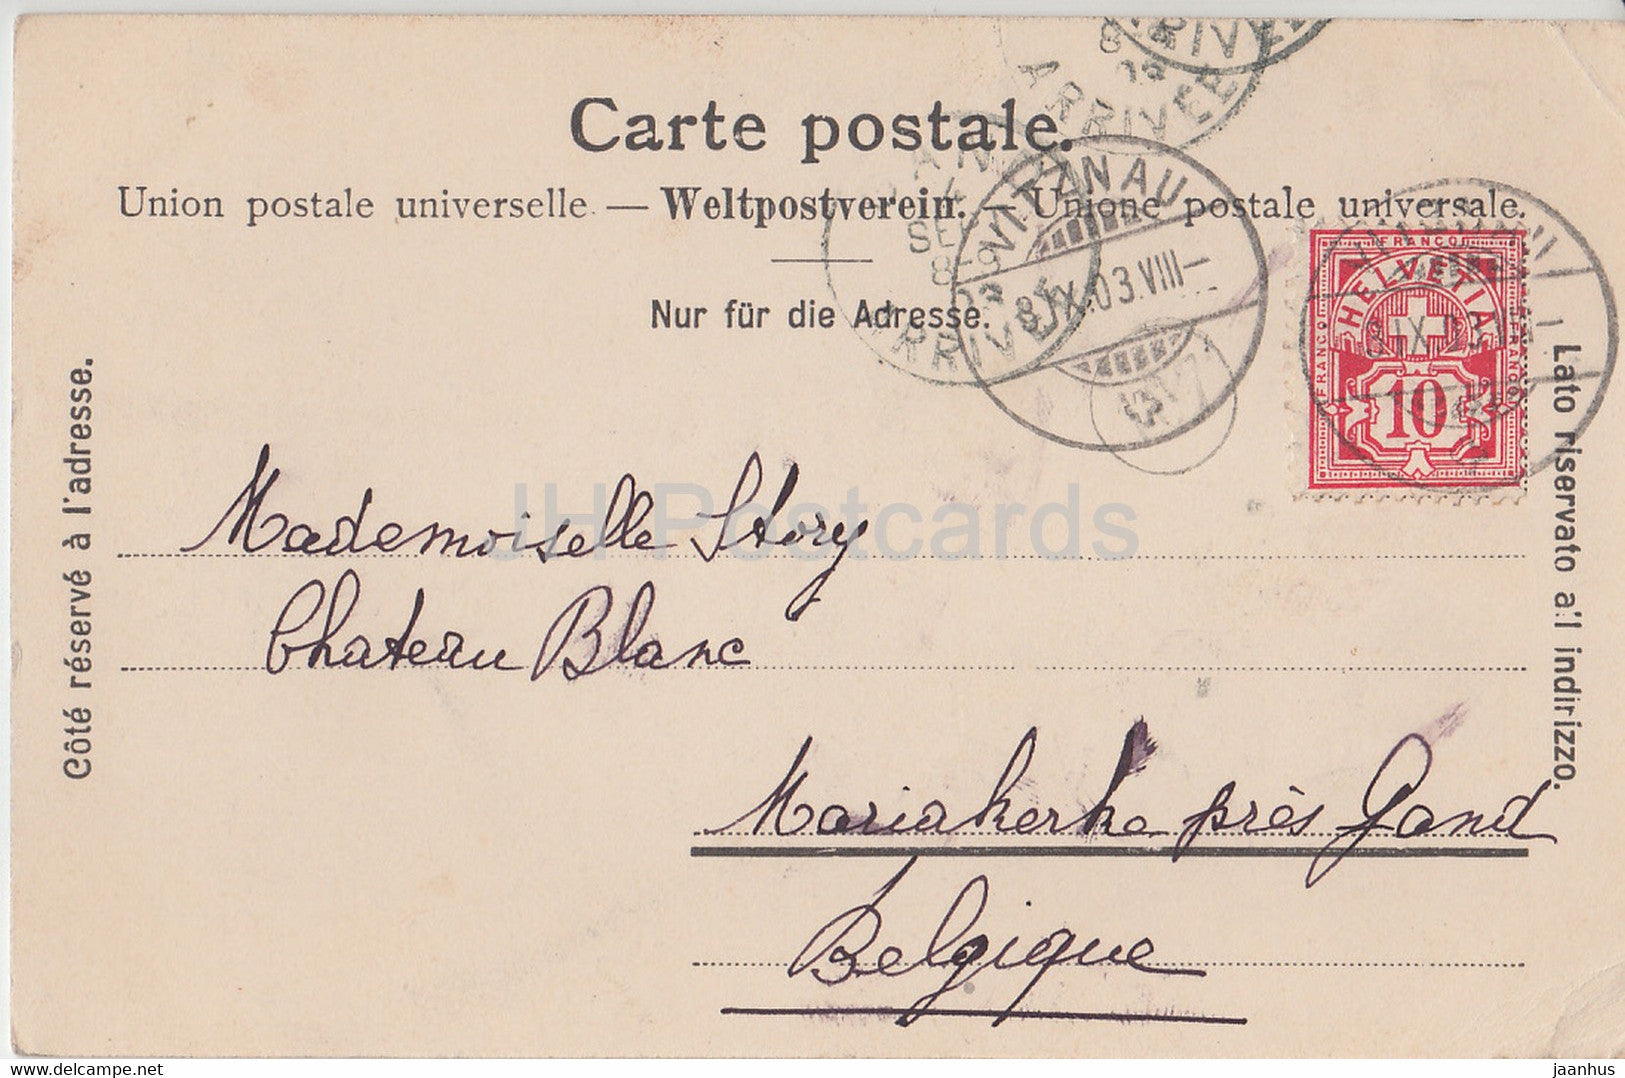 Carte postale.
Union postale universelle. — Weltpostverein. — Unione postale universale.
Nur für die Adresse.
Côté réservé à l'adresse.
Lato riservato all indirizzo.
ARRIVÉE
ARRIVÉE
SEPT
8-9
VITZNAU
IX.03.VIII—
FRANCO
HELVETIA
FRANCO
FRANCO
10
Mademoiselle Story
Chateau Blanc
Mariakerke près Gand
Belgique
JH Postcards
jaanhus